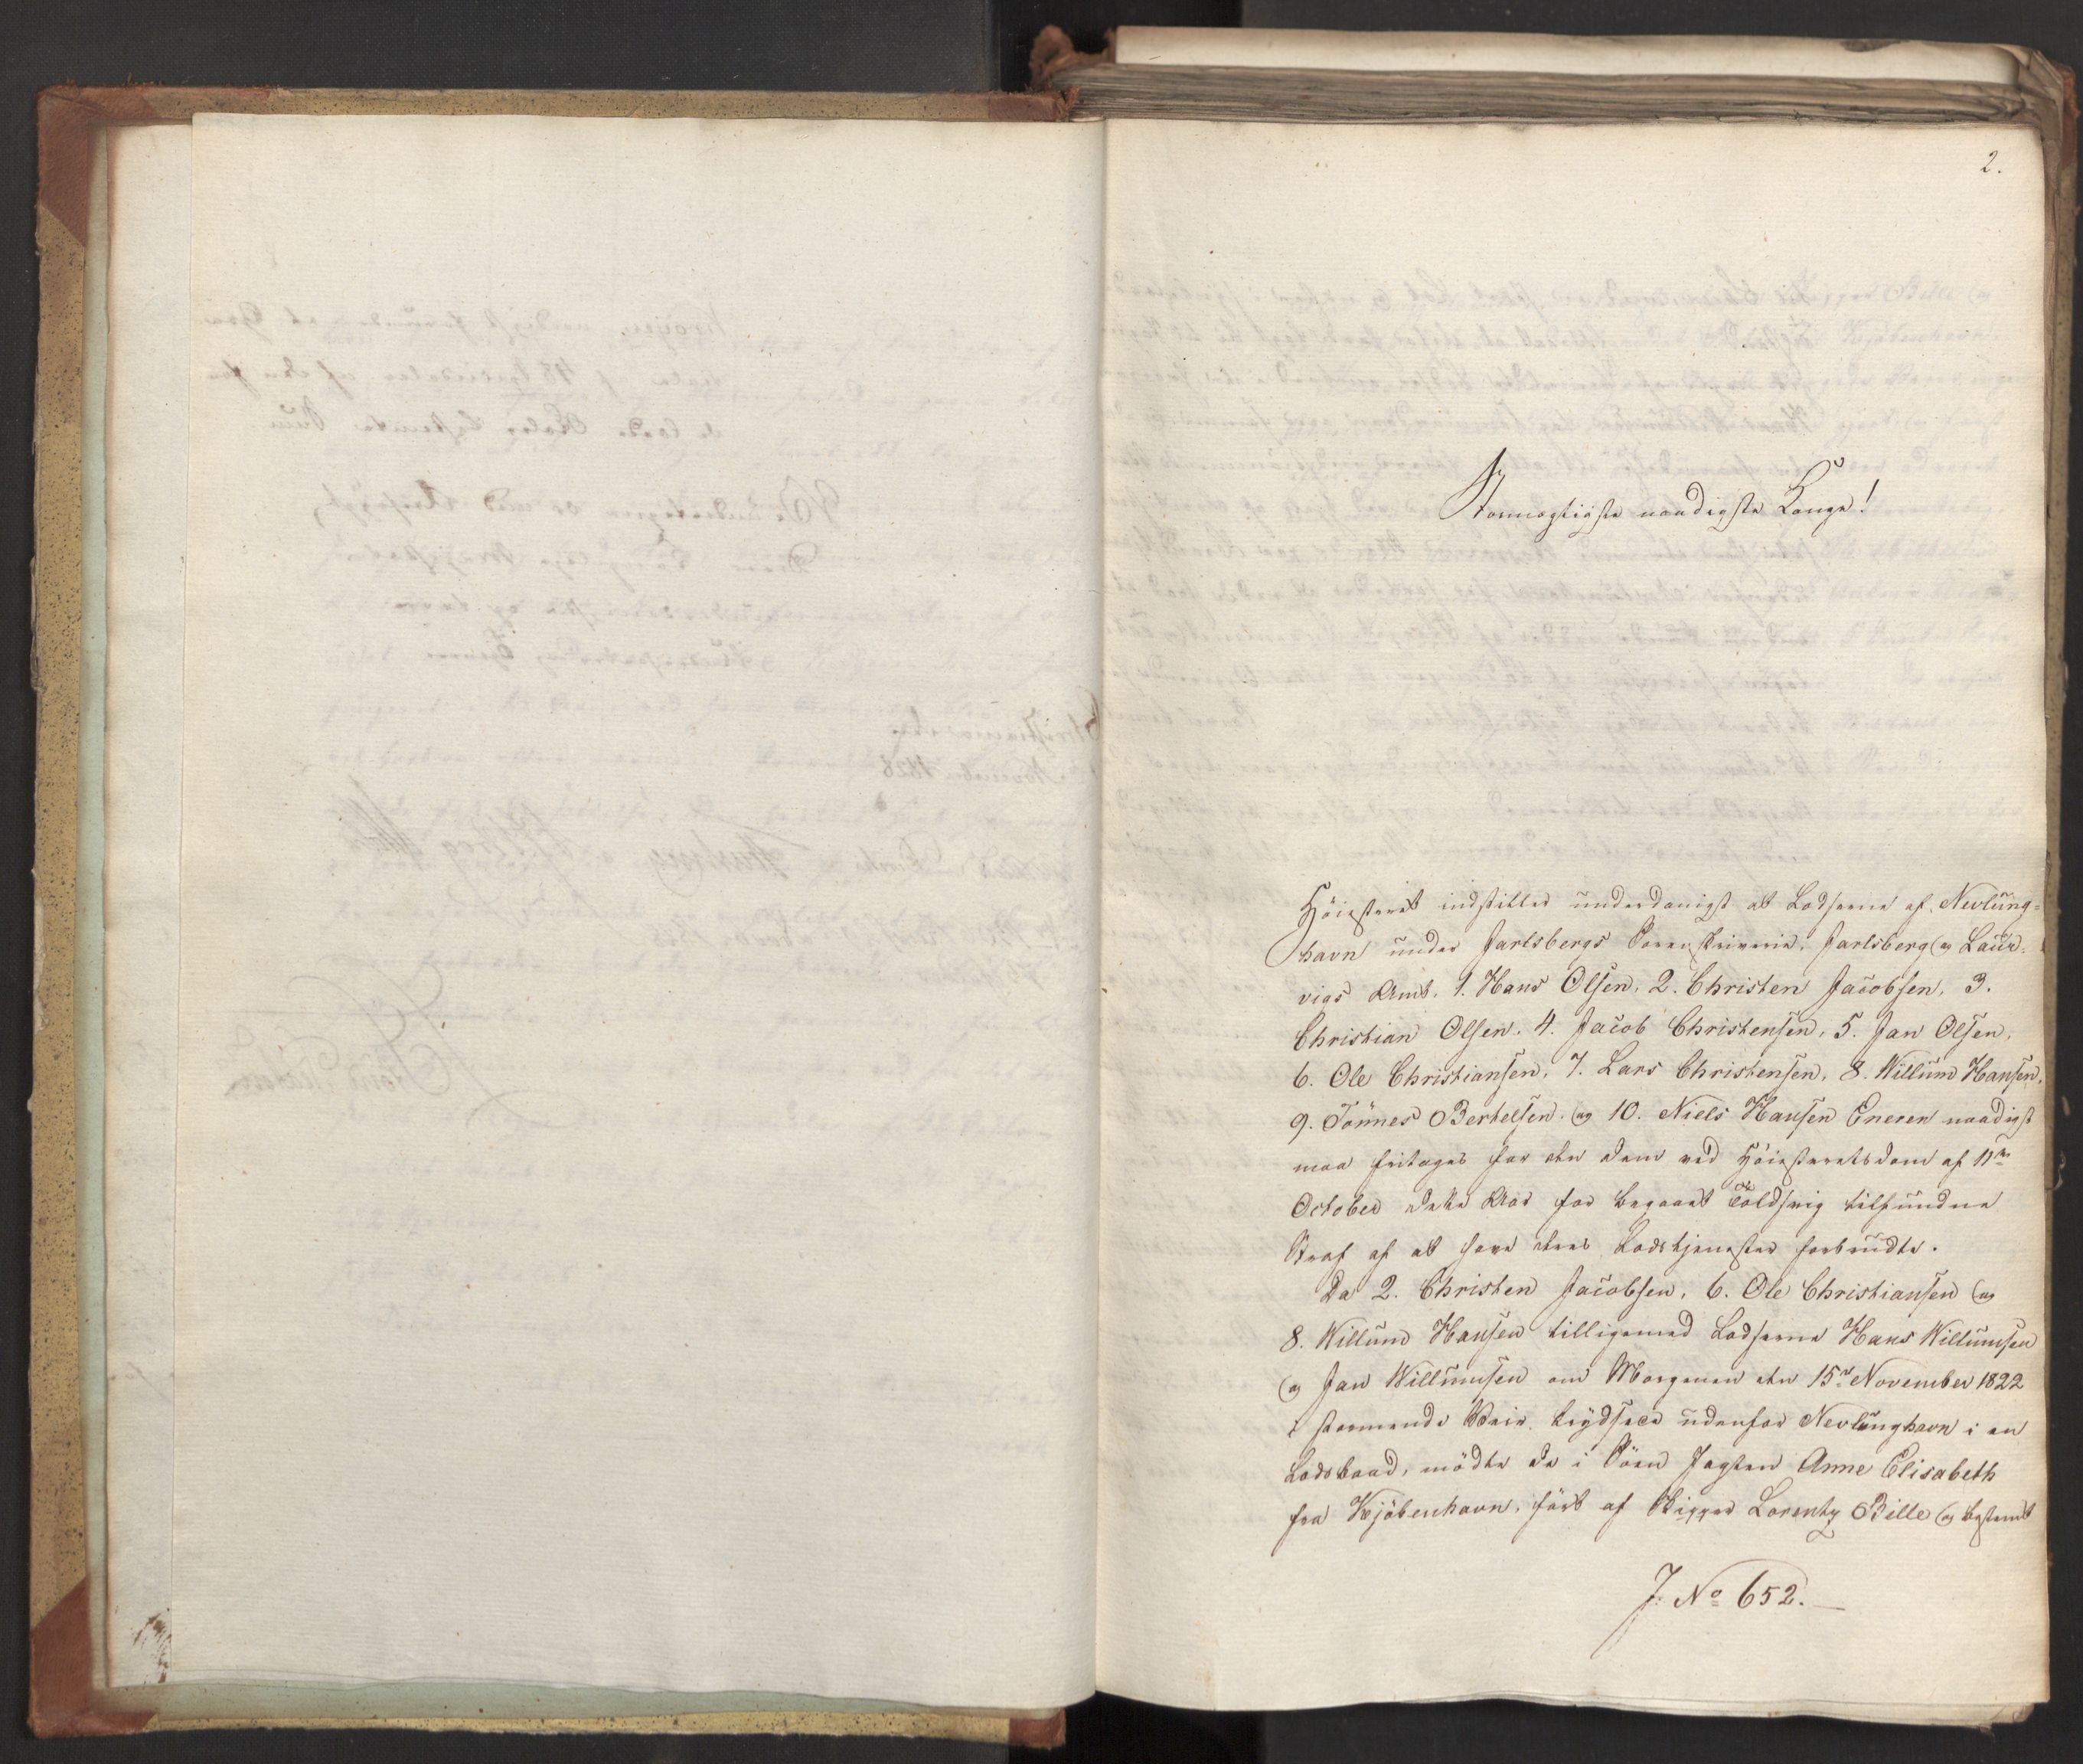 2.
Stormægtigste naadigste Konge!
Höiesteret indstiller underdanigst at Lodserne af Nevlung-
havn under Jarlsbergs Sorenskriverie, Jarlsberg og Laur-
vigs Amt, 1. Hans Olsen, 2. Christen Jacobsen, 3.
Christian Olsen, 4. Jacob Christensen, 5. Jan Olsen,
6. Ole Christiansen, 7. Lars Christensen, 8. Willum Hansen,
9. Tönnes Bertelsen og 10. Niels Hansen Eneren naadigst
maa fritages for den dem ved Höiesteretsdom af 11te
October dette Aar for begaaet Toldsvig tilfundne
Straf af at have deres Lodstjenester forbrudte.
Da 2. Christen Jacobsen, 6. Ole Christiansen og
8. Willum Hansen tilligemed Lodserne Hans Willumsen
og Jan Willumsen om Morgenen den 15de November 1822
i stormende Veir krydsede udenfor Nevlunghavn i en
Lodsbaad, mödte de i Söen Jagten Anne Elisabeth
fra Kjöbenhavn, fört af Skipper Lorentz Bille og bestemt
J. No 652.